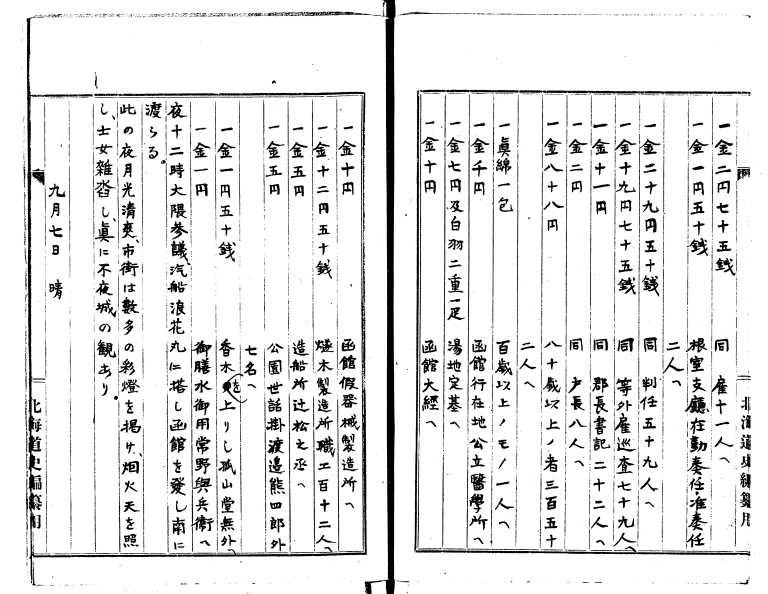 一金二円七十五銭 同雇十一人へ
一金一円五十銭 根室支廳在勤奏任准奏任
二人へ
一金二十九円五十銭 同判任五十九人へ
一金十九円七十五銭 同等外雇巡査七十九人へ
一金十一円 同郡長書記二十二人へ
一金二円 同戸長八人へ
一金八十八円 八十歳以上ノ者三百五十
二人へ
一眞綿一包 百歳以上ノモノ一人へ
一金千円 函館行在地公立醫學所へ
一金七円及白羽二重一疋 湯地定基へ
一金十円 函館大經へ
北海道史編纂用
一金十円 函館假器械製造所へ
一金十二円五十銭 燧木製造所職工百十二人へ
一金五円 造船所辻松之丞へ
一金五円 公園世話掛渡邉熊四郎外
七名へ
一金一円五十銭 香木上りし孤山堂無外へ
一金一円 御膳水御用常野與兵衛へ
夜十二時大隈参議、汽船浪花丸に搭し函館を發し南に
渡らる。
此の夜月光清爽、市街は數多の彩燈を掲げ、烟火天を照
し、士女雑沓し、眞に不夜城の観あり。
九月七日 晴
北海道史編纂用